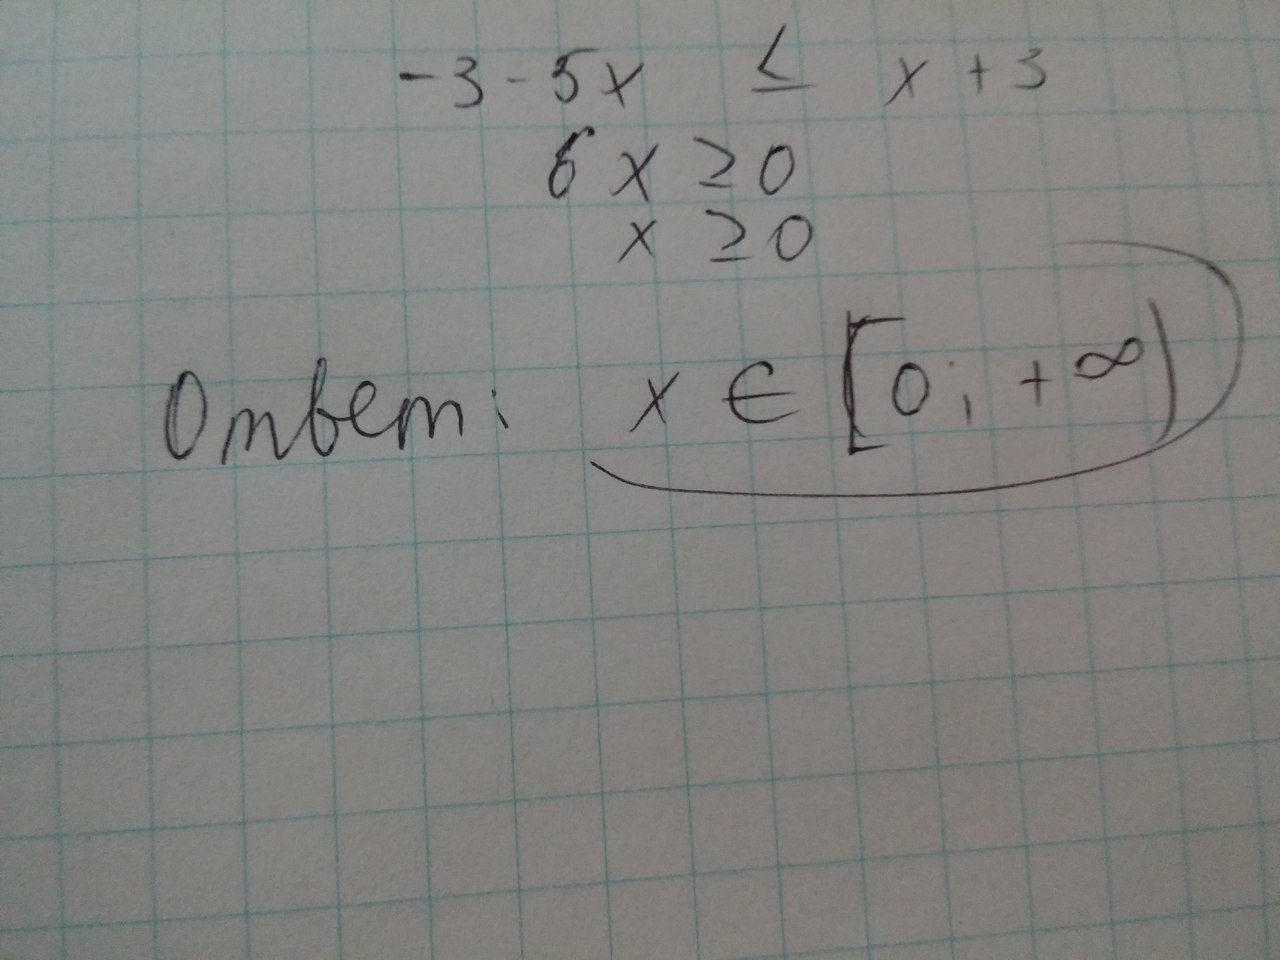 -3-5x ≤ x+3
6x ≥ 0
x ≥ 0
Ответ: x ∈ [0; +∞)